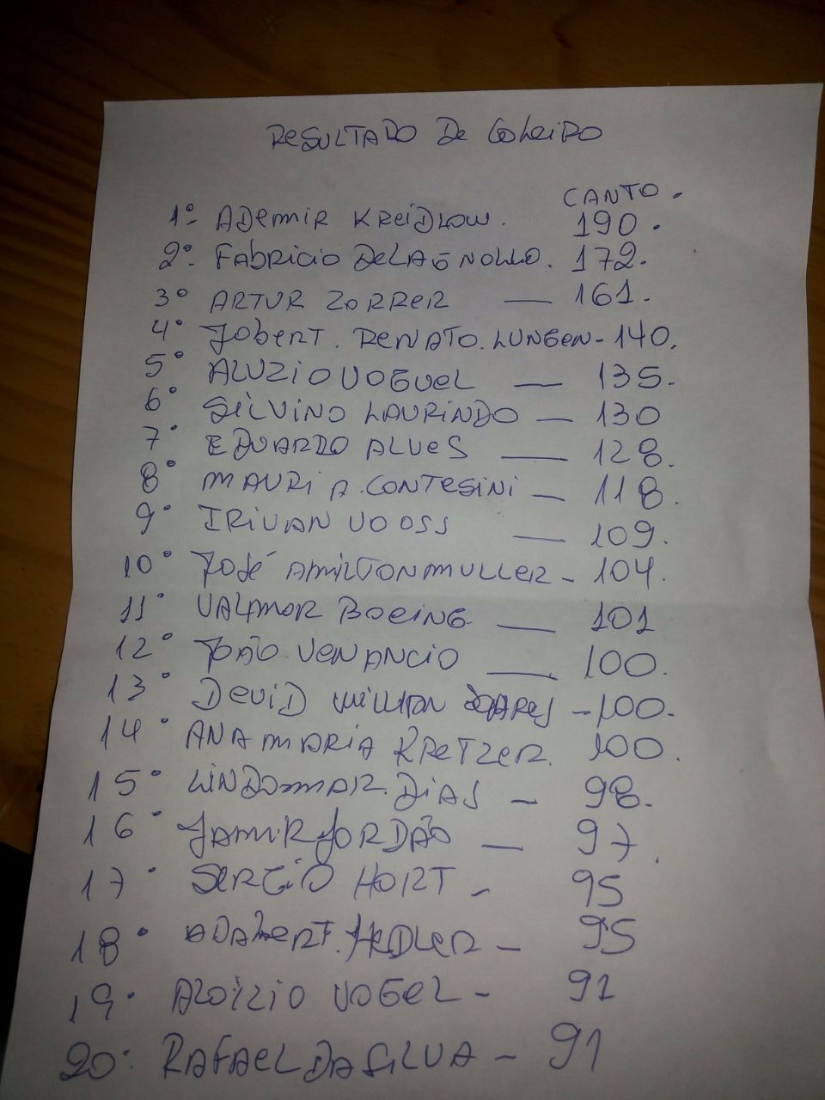 RESULTADO De Coleiro
CANTO.
1º ADemir KReiDLOW. 190.
2º FAbricio DeLAGNOLLO. 172.
3º ARTUR ZORRER — 161.
4º JobeRT. RENATO. LUNGEN - 140.
5º ALUZIO VOGUEL — 135.
6º SILVINO LAURINDO — 130
7º EDUARDO ALVES — 128.
8º MAURI A. CONTESINI — 118.
9º IRIVAN VOOSS — 109.
10º José AMILTON MULLER - 104.
11º VALMOR BOEING — 101
12º JOÃO VENANCIO — 100.
13º DEVID WILLIAN SOARES - 100.
14º ANA MARIA KRETZER. 100.
15º LINDOMAR. DIAS - 98.
16º JAMIR JORDÃO — 97.
17º SERGIO HORT - 95
18º ADALBERT. HEDLER - 95
19º ALOIZIO VOGEL - 91
20º RAFAEL DA SILVA - 91